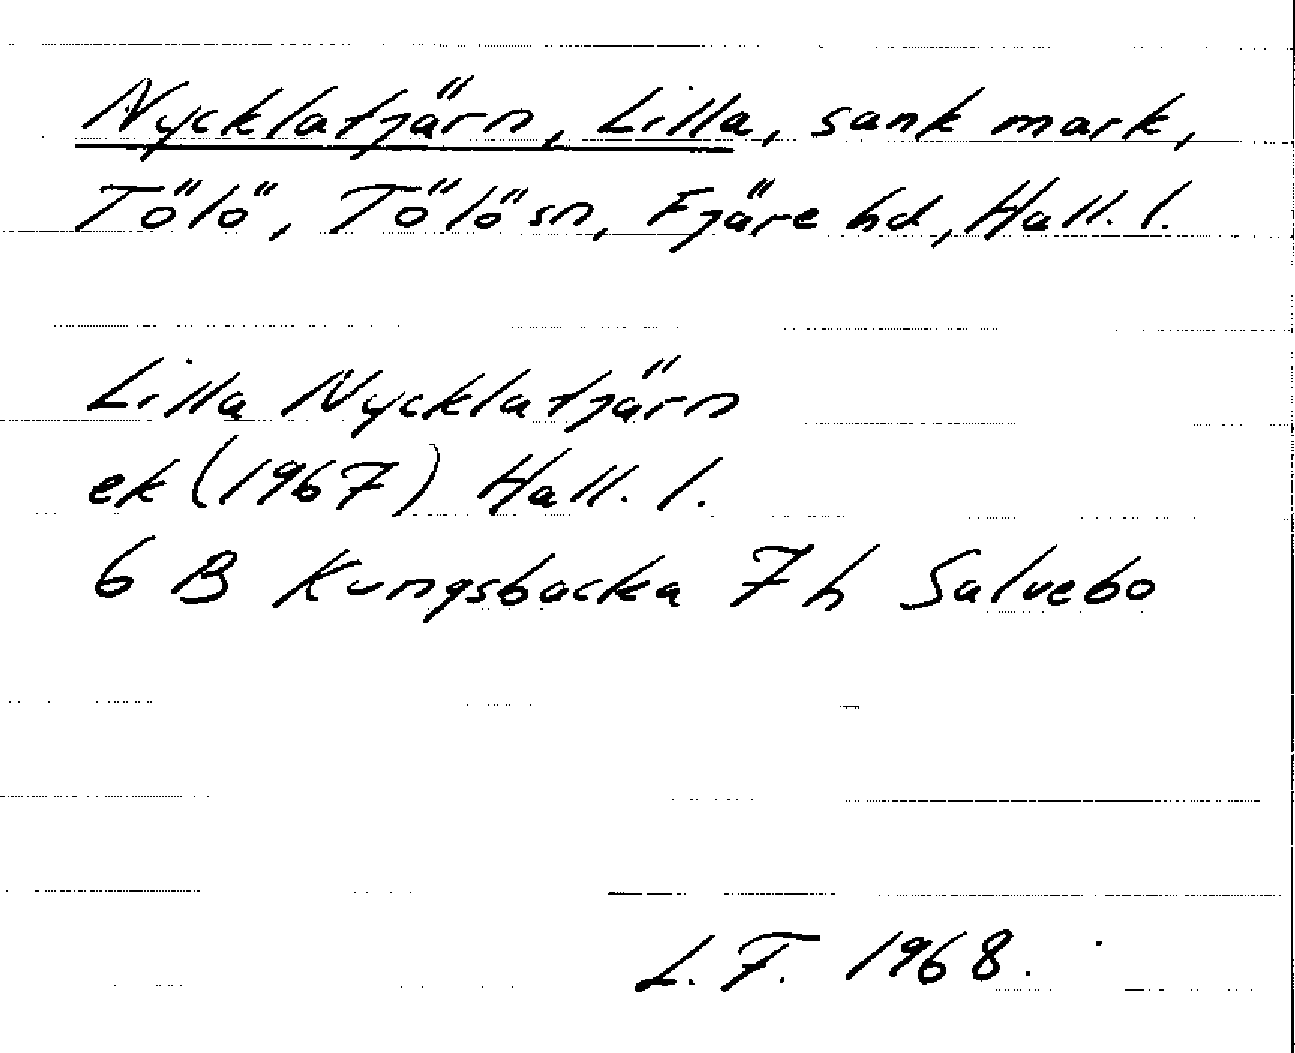 Nycklatjärn, Lilla, sank mark,
Tölö, Tölö sn, Fjäre hd, Hall. l.
Lilla Nycklatjärn
ek (1967) Hall. l.
6 B Kungsbacka 7 h Salvebo
L. F. 1968.